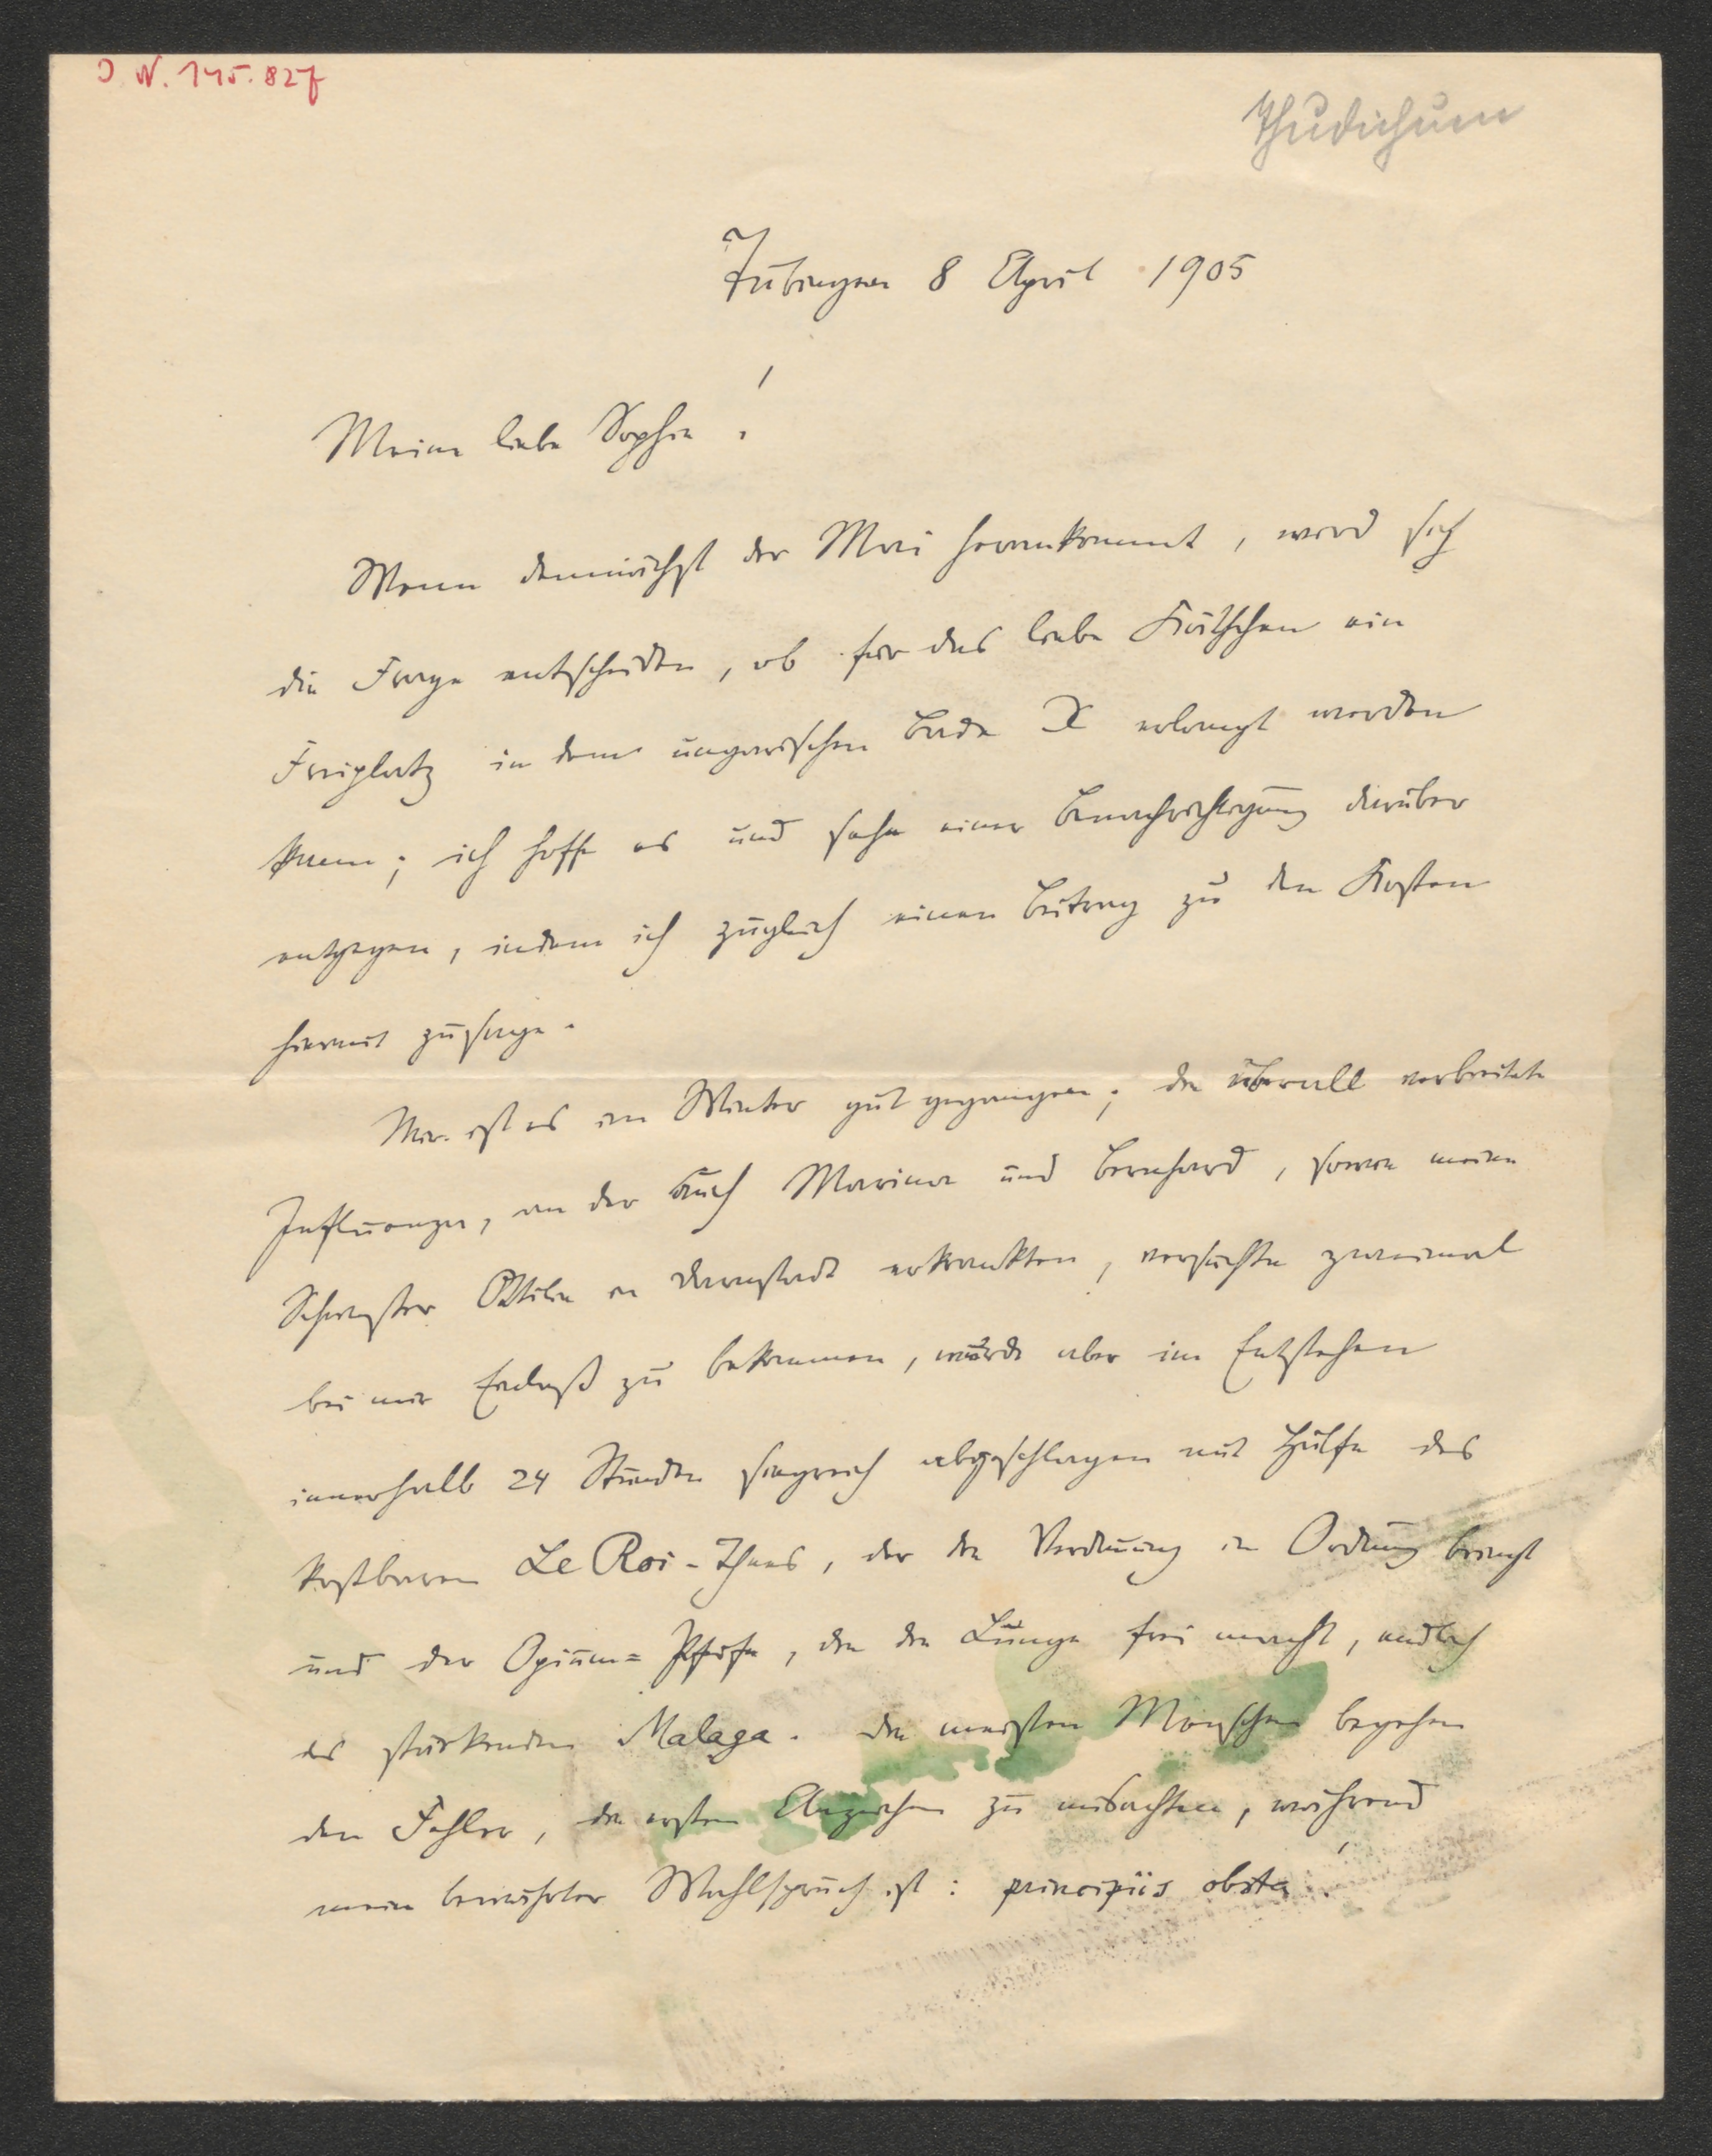 J. N. 145.827
Thudichum
Tübingen 8 April 1905
Meine liebe Sophie!
Wenn demnächst der Mai herankommt, wird sich
die Frage entscheiden, ob für das liebe Käthchen ein
Freiplatz in dem ungarischen Bade X erlangt werden
kann; ich hoffe es und sehe einer Benachrichtigung darüber
entgegen, indem ich zugleich einen Beitrag zu den Kosten
hiermit zusage.
Mir ist es im Winter gut gegangen; die überall verbreitete
Influenza, an der auch Marina und Bernhard, sowie meine
Schwester Ottilie in Darmstadt erkrankten, versuchte zweimal
bei mir Einlaß zu bekommen, wurde aber im Entstehen
innerhalb 24 Stunden siegreich abgeschlagen mit Hülfe des
kostbaren Le Roi-Thees, der die Verdauung in Ordnung bringt
und der Opium-Pfeife, die die Lunge frei macht, endlich
des stärkenden Malaga. Die meisten Menschen begehen
den Fehler, die ersten Anzeichen zu misachten, während
mein bewährter Wahlspruch ist: principiis obsta!